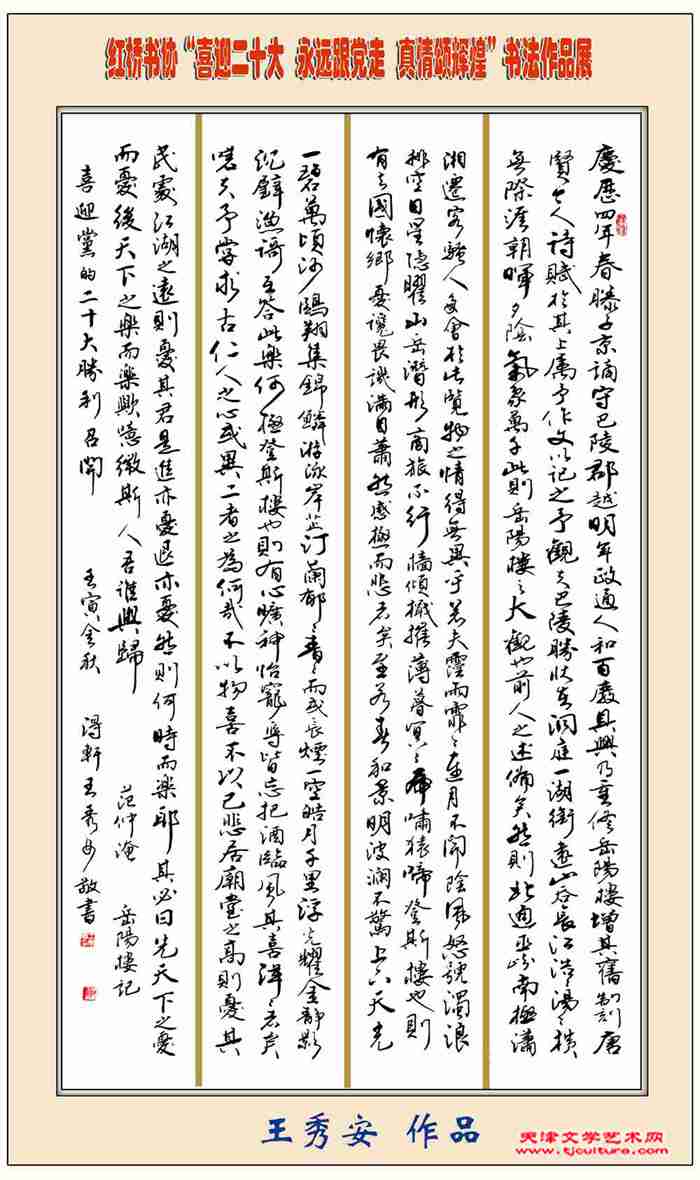 红桥书协“喜迎二十大 永远跟党走 真情颂辉煌”书法作品展
慶歷四年春滕子京謫守巴陵郡越明年政通人和百廢具興乃重修岳陽樓增其舊制刻唐
賢今人詩賦於其上屬予作文以記之予觀夫巴陵勝狀在洞庭一湖銜遠山吞長江浩〻湯〻橫
無際涯朝暉夕陰氣象萬千此則岳陽樓之大觀也前人之述備矣然則北通巫峽南極瀟
湘遷客騷人多會於此覽物之情得無異乎若夫霪雨霏〻連月不開陰風怒號濁浪
排空日星隱曜山岳潛形商旅不行檣傾檝摧薄暮冥〻虎嘯猿啼登斯樓也則
有去國懷鄉憂讒畏譏滿目蕭然感極而悲者矣至若春和景明波瀾不驚上下天光
一碧萬頃沙鷗翔集錦鱗游泳岸芷汀蘭郁〻青〻而或長煙一空皓月千里浮光耀金靜影
沉璧漁謌互答此樂何極登斯樓也則有心曠神怡寵辱皆忘把酒臨風其喜洋〻者矣
嗟夫予嘗求古仁人之心或異二者之為何哉不以物喜不以己悲居廟堂之高則憂其
民處江湖之遠則憂其君是進亦憂退亦憂然則何時而樂耶其必曰先天下之憂
而憂後天下之樂而樂歟噫微斯人吾誰與歸 范仲淹 岳陽樓記
喜迎黨的二十大勝利召開 壬寅金秋 淂軒王秀安敬書
王秀安 作品
天津文学艺术网
www.tjculture.com